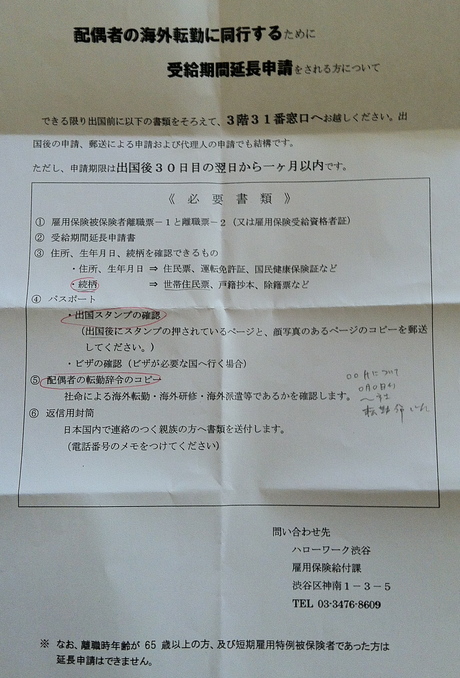 配偶者の海外転勤に同行するために
受給期間延長申請をされる方について
できる限り出国前に以下の書類をそろえて、3階31番窓口へお越しください。出
国後の申請、郵送による申請および代理人の申請でも結構です。
ただし、申請期限は出国後30日目の翌日から一ヶ月以内です。
《 必 要 書 類 》
① 雇用保険被保険者離職票－1と離職票－2（又は雇用保険受給資格者証）
② 受給期間延長申請書
③ 住所、生年月日、続柄を確認できるもの
・住所、生年月日 ⇒ 住民票、運転免許証、国民健康保険証など
・続柄 ⇒ 世帯住民票、戸籍抄本、除籍票など
④ パスポート
・出国スタンプの確認
（出国後にスタンプの押されているページと、顔写真のあるページのコピーを郵送
してください。）
・ビザの確認（ビザが必要な国へ行く場合）
⑤ 配偶者の転勤辞令のコピー
社命による海外転勤・海外研修・海外派遣等であるかを確認します。
⑥ 返信用封筒
日本国内で連絡のつく親族の方へ書類を送付します。
（電話番号のメモをつけてください）
問い合わせ先
ハローワーク渋谷
雇用保険給付課
渋谷区神南1－3－5
TEL 03-3476-8609
※ なお、離職時年齢が 65 歳以上の方、及び短期雇用特例被保険者であった方は
延長申請はできません。